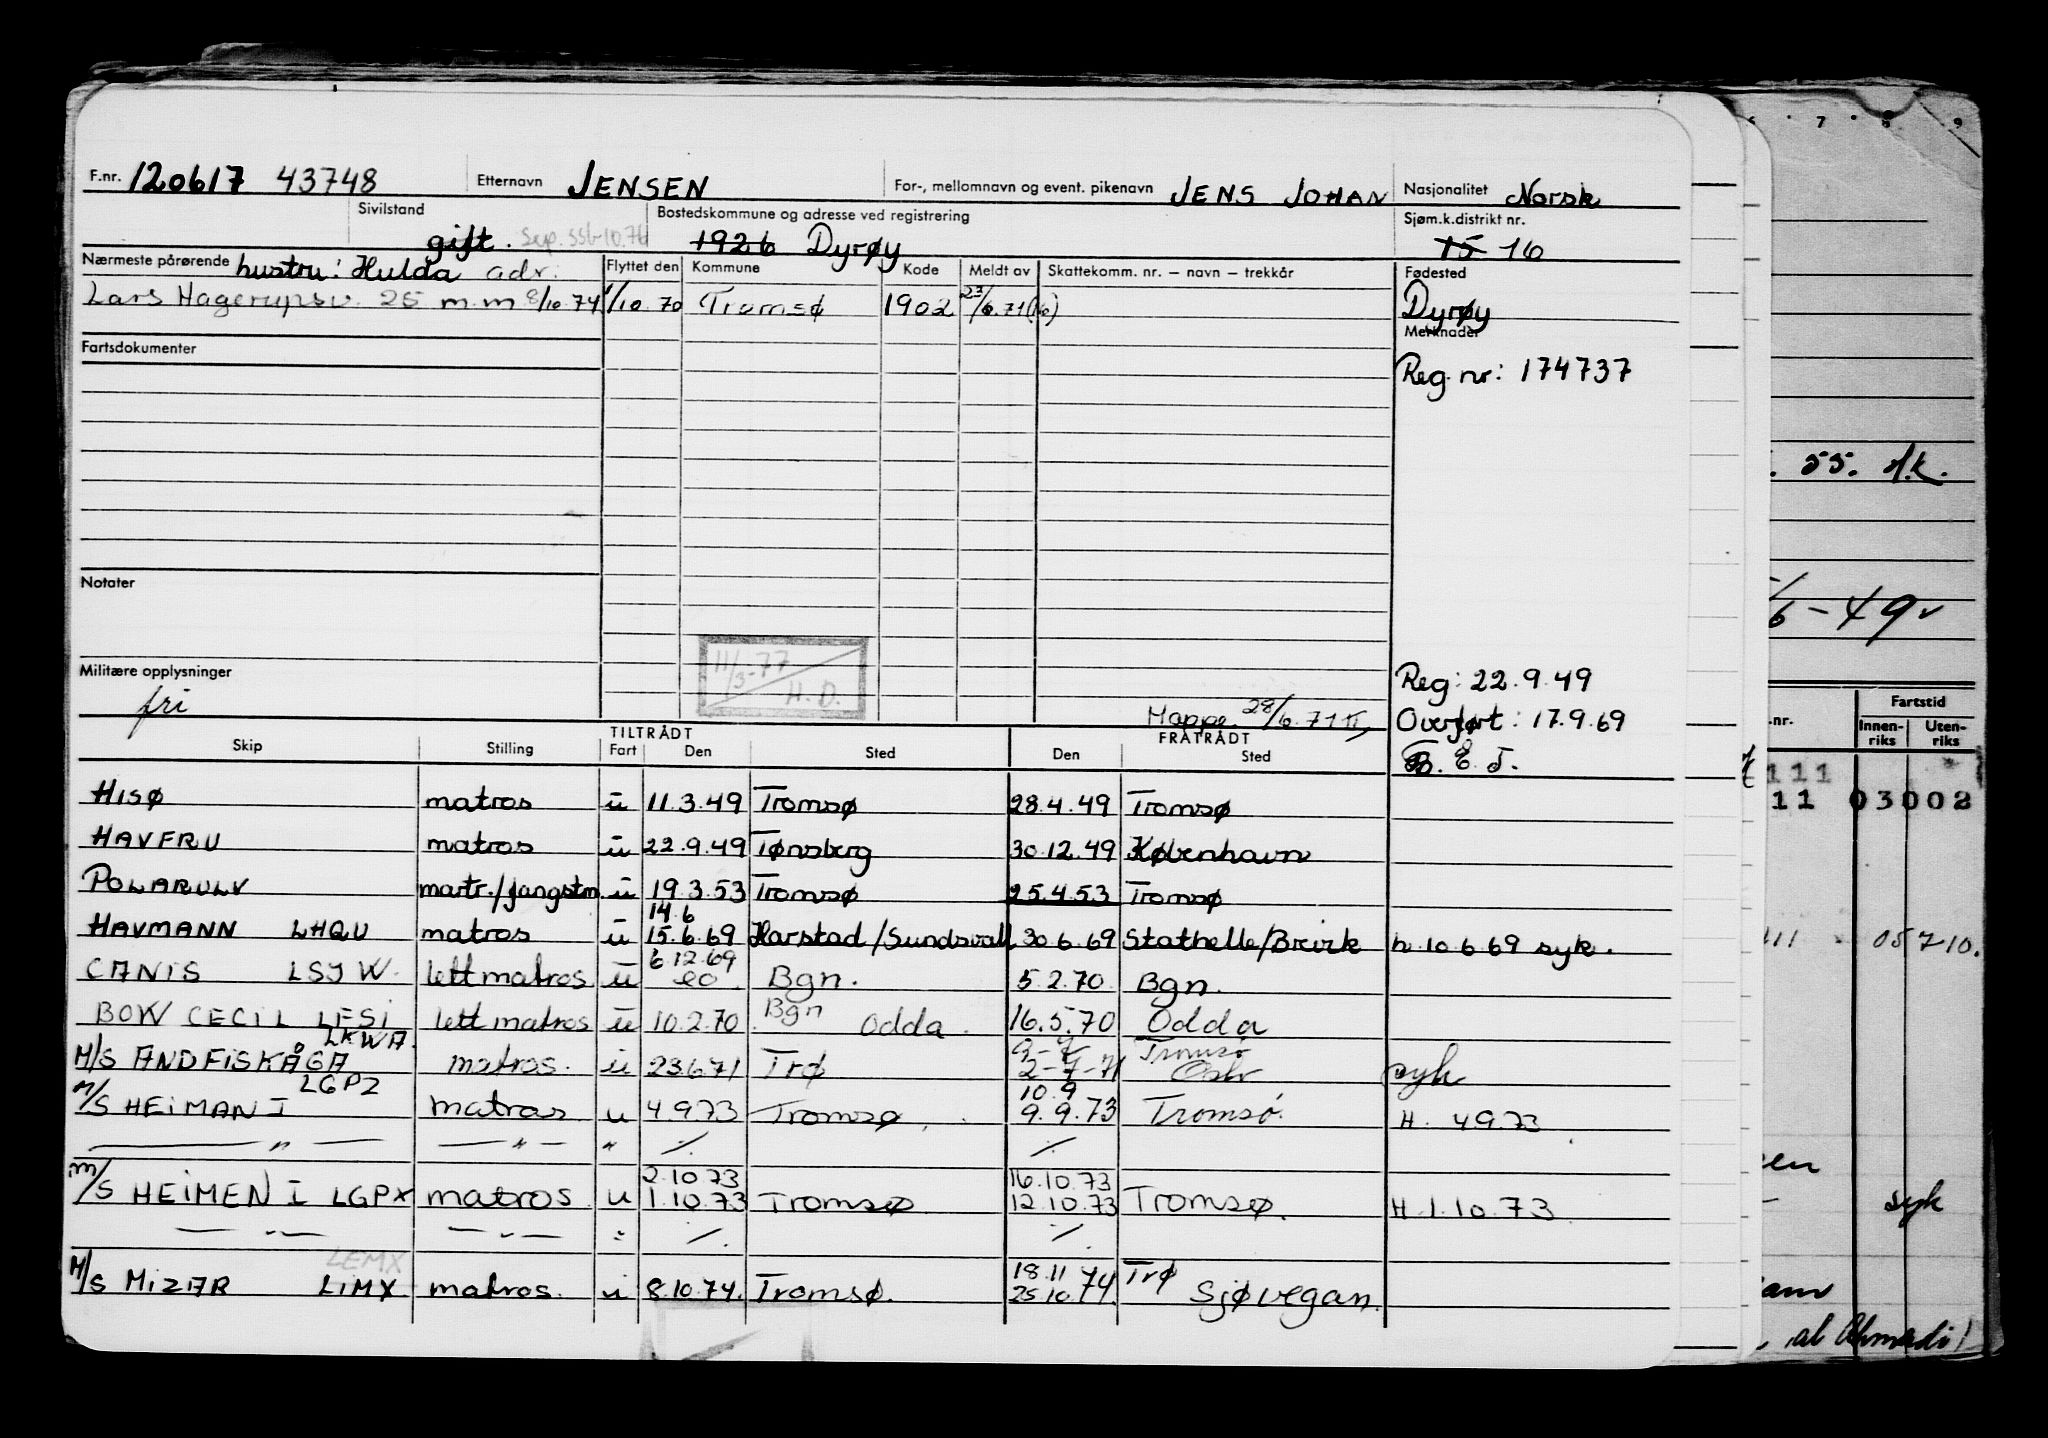 F.nr. 120617 43748 Etternavn JENSEN For-, mellomnavn og event. pikenavn JENS JOHAN Nasjonalitet Norsk
Sivilstand gift. Sep. Bostedskommune og adresse ved registrering 1926 Dyrøy Sjøm.k.distrikt nr. 15 16
Nærmeste pårørende hustru: Hulda adr. Flyttet den Kommune Kode Meldt av Skattekomm. nr. – navn – trekkår Fødested
Lars Hagerupsv. 25 m.m 8/10.74 1/10.70 Tromsø 1902 23/6.71 Dyrøy
Fartsdokumenter Merknader
Reg. nr: 174737
Notater
Militære opplysninger
fri
11/3-77
H.D.
Mappe 28/6.71
Reg: 22.9.49
Overført: 17.9.69
B.E.J.
Skip Stilling TILTRÅDT Fart Den Sted FRATRÅDT Den Sted
HISØ matros u 11.3.49 Tromsø 28.4.49 Tromsø
HAVFRU matros u 22.9.49 Tønsberg 30.12.49 København
POLARULV matr./fangstm u 19.3.53 Tromsø 25.4.53 Tromsø
14.6
HAVMANN LHQU matros u 15.6.69 Harstad/Sundsvall 30.6.69 Stathelle/Brevik h 10.6.69 syk.
6.12.69
CANIS LSJW. lettmatros u 20. Bgn. 5.2.70 Bgn.
BOW CECIL LESI lettmatros u 10.2.70 Bgn Odda. 16.5.70 Odda
LKWA. Tromsø
M/S ANDFISKÅGA matros. u 23671 Trø 2-7-71 syk
LGPZ 10.9
M/S HEIMAN I matros u 4.9.73 Tromsø. 9.9.73 Tromsø. H. 4973
— " — — " — " ./. ./.
2.10.73 16.10.73
M/S HEIMEN I LGPX matros u 1.10.73 Tromsø 12.10.73 Tromsø. H 1.10.73
— " — — " — " ./. ./.
LEMX 18.11 Trø
M/S MIZAR LIMX matros. u 8.10.74. Tromsø. 25.10.74. Sjøvegan.
7 8 9
. 55.
6-49
.nr. Fartstid
Innen-riks Uten-riks
111
11 03002
111 05 710.
syk